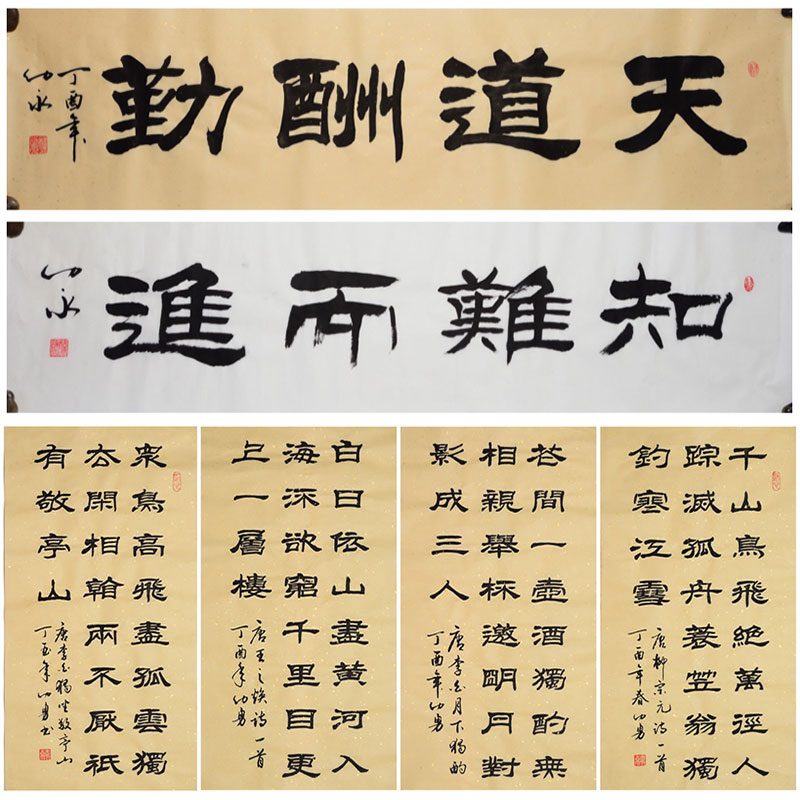 天道酬勤
丁酉年
知難而進
千山鳥飛絕萬徑人
踪滅孤舟蓑笠翁獨
釣寒江雪
唐柳宗元诗一首
丁酉年春
花間一壺酒獨酌無
相親舉杯邀明月對
影成三人
唐李白月下獨酌
丁酉年
白日依山盡黃河入
海流欲窮千里目更
上一層樓
唐王之渙诗一首
丁酉年
衆鳥高飛盡孤雲獨
去閑相看兩不厭祇
有敬亭山
唐李白獨坐敬亭山
丁酉年